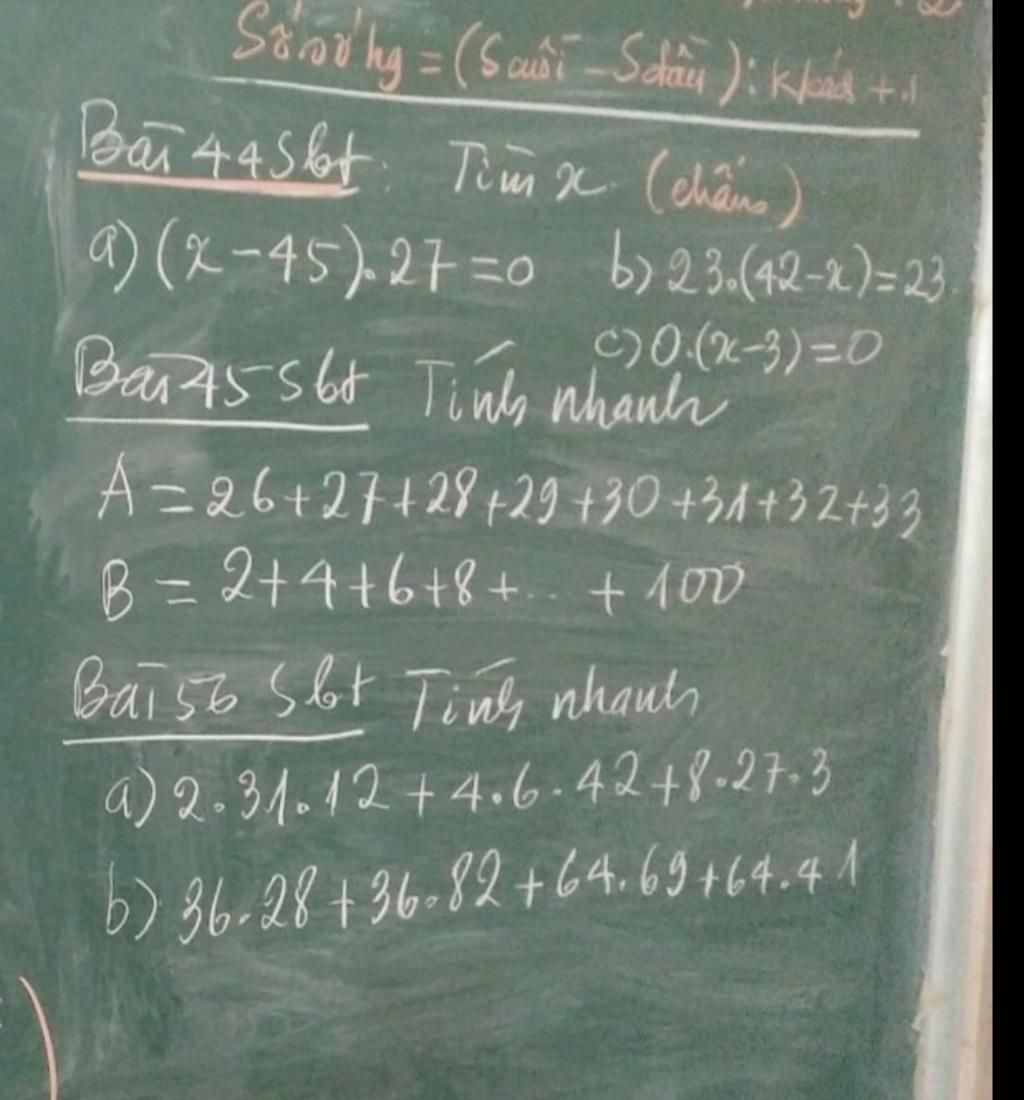 Số số hg = (S cuối - S đầu) : K/cách + 1
Bài 44 Sbt: Tìm x (chấm)
a) (x - 45).27 = 0 b) 23.(42 - x) = 23
c) 0.(x - 3) = 0
Bài 45 Sbt Tính nhanh
A = 26 + 27 + 28 + 29 + 30 + 31 + 32 + 33
B = 2 + 4 + 6 + 8 + ... + 100
Bài 56 Sbt Tính nhanh
a) 2.31.12 + 4.6.42 + 8.27.3
b) 36.28 + 36.82 + 64.69 + 64.41